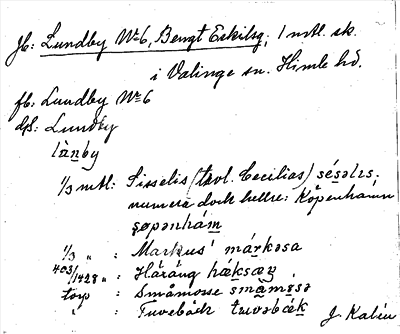 Jb: Lundby No 6, Bengt Eskilsg; 1 mtl. sk.
i Valinge sn. Himle hd.
fb: Lundby No 6
ds: Lundby
làṉby
1/3 mtl: Sisselis (trol. Cecilias) sésəlɪs.
numera dock hellre: Köpenhamn
şøpənhám
1/3 " : Markus' márkəsa
403/1428 " : Háráng
torp : Småmosse
" : Tuvebäck tuvəbäk
J. Kalén